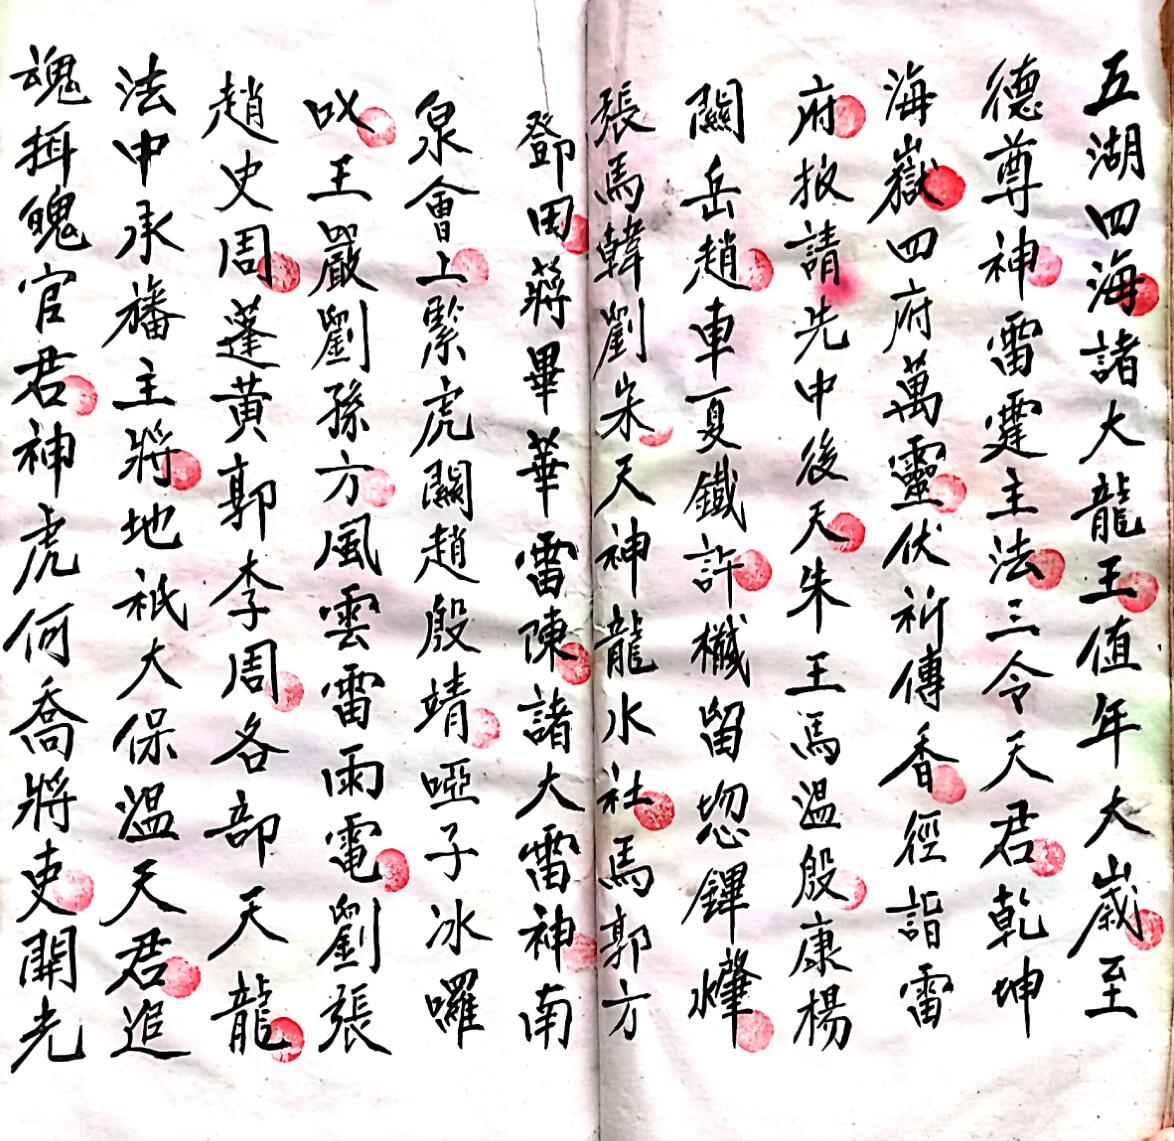 五湖四海諸大龍王值年大歲至
德尊神雷霆主法三令天君乾坤
海嶽四府萬靈伏祈傳香徑詣雷
府披請先中後天朱王馬溫殷康楊
關岳趙車夏鐵許櫼留忽鏎
張馬韓劉朱天神龍水社馬郭方
鄧田蔣畢華雷陳諸大雷神南
泉會上緊虎關趙殷靖啞子冰囉
吙王嚴劉孫方風雲雷雨電劉張
趙史周蓬黃郭李周各部天龍
法中承旛主將地祇大保溫天君追
魂揖魄官君神虎何喬將吏開光